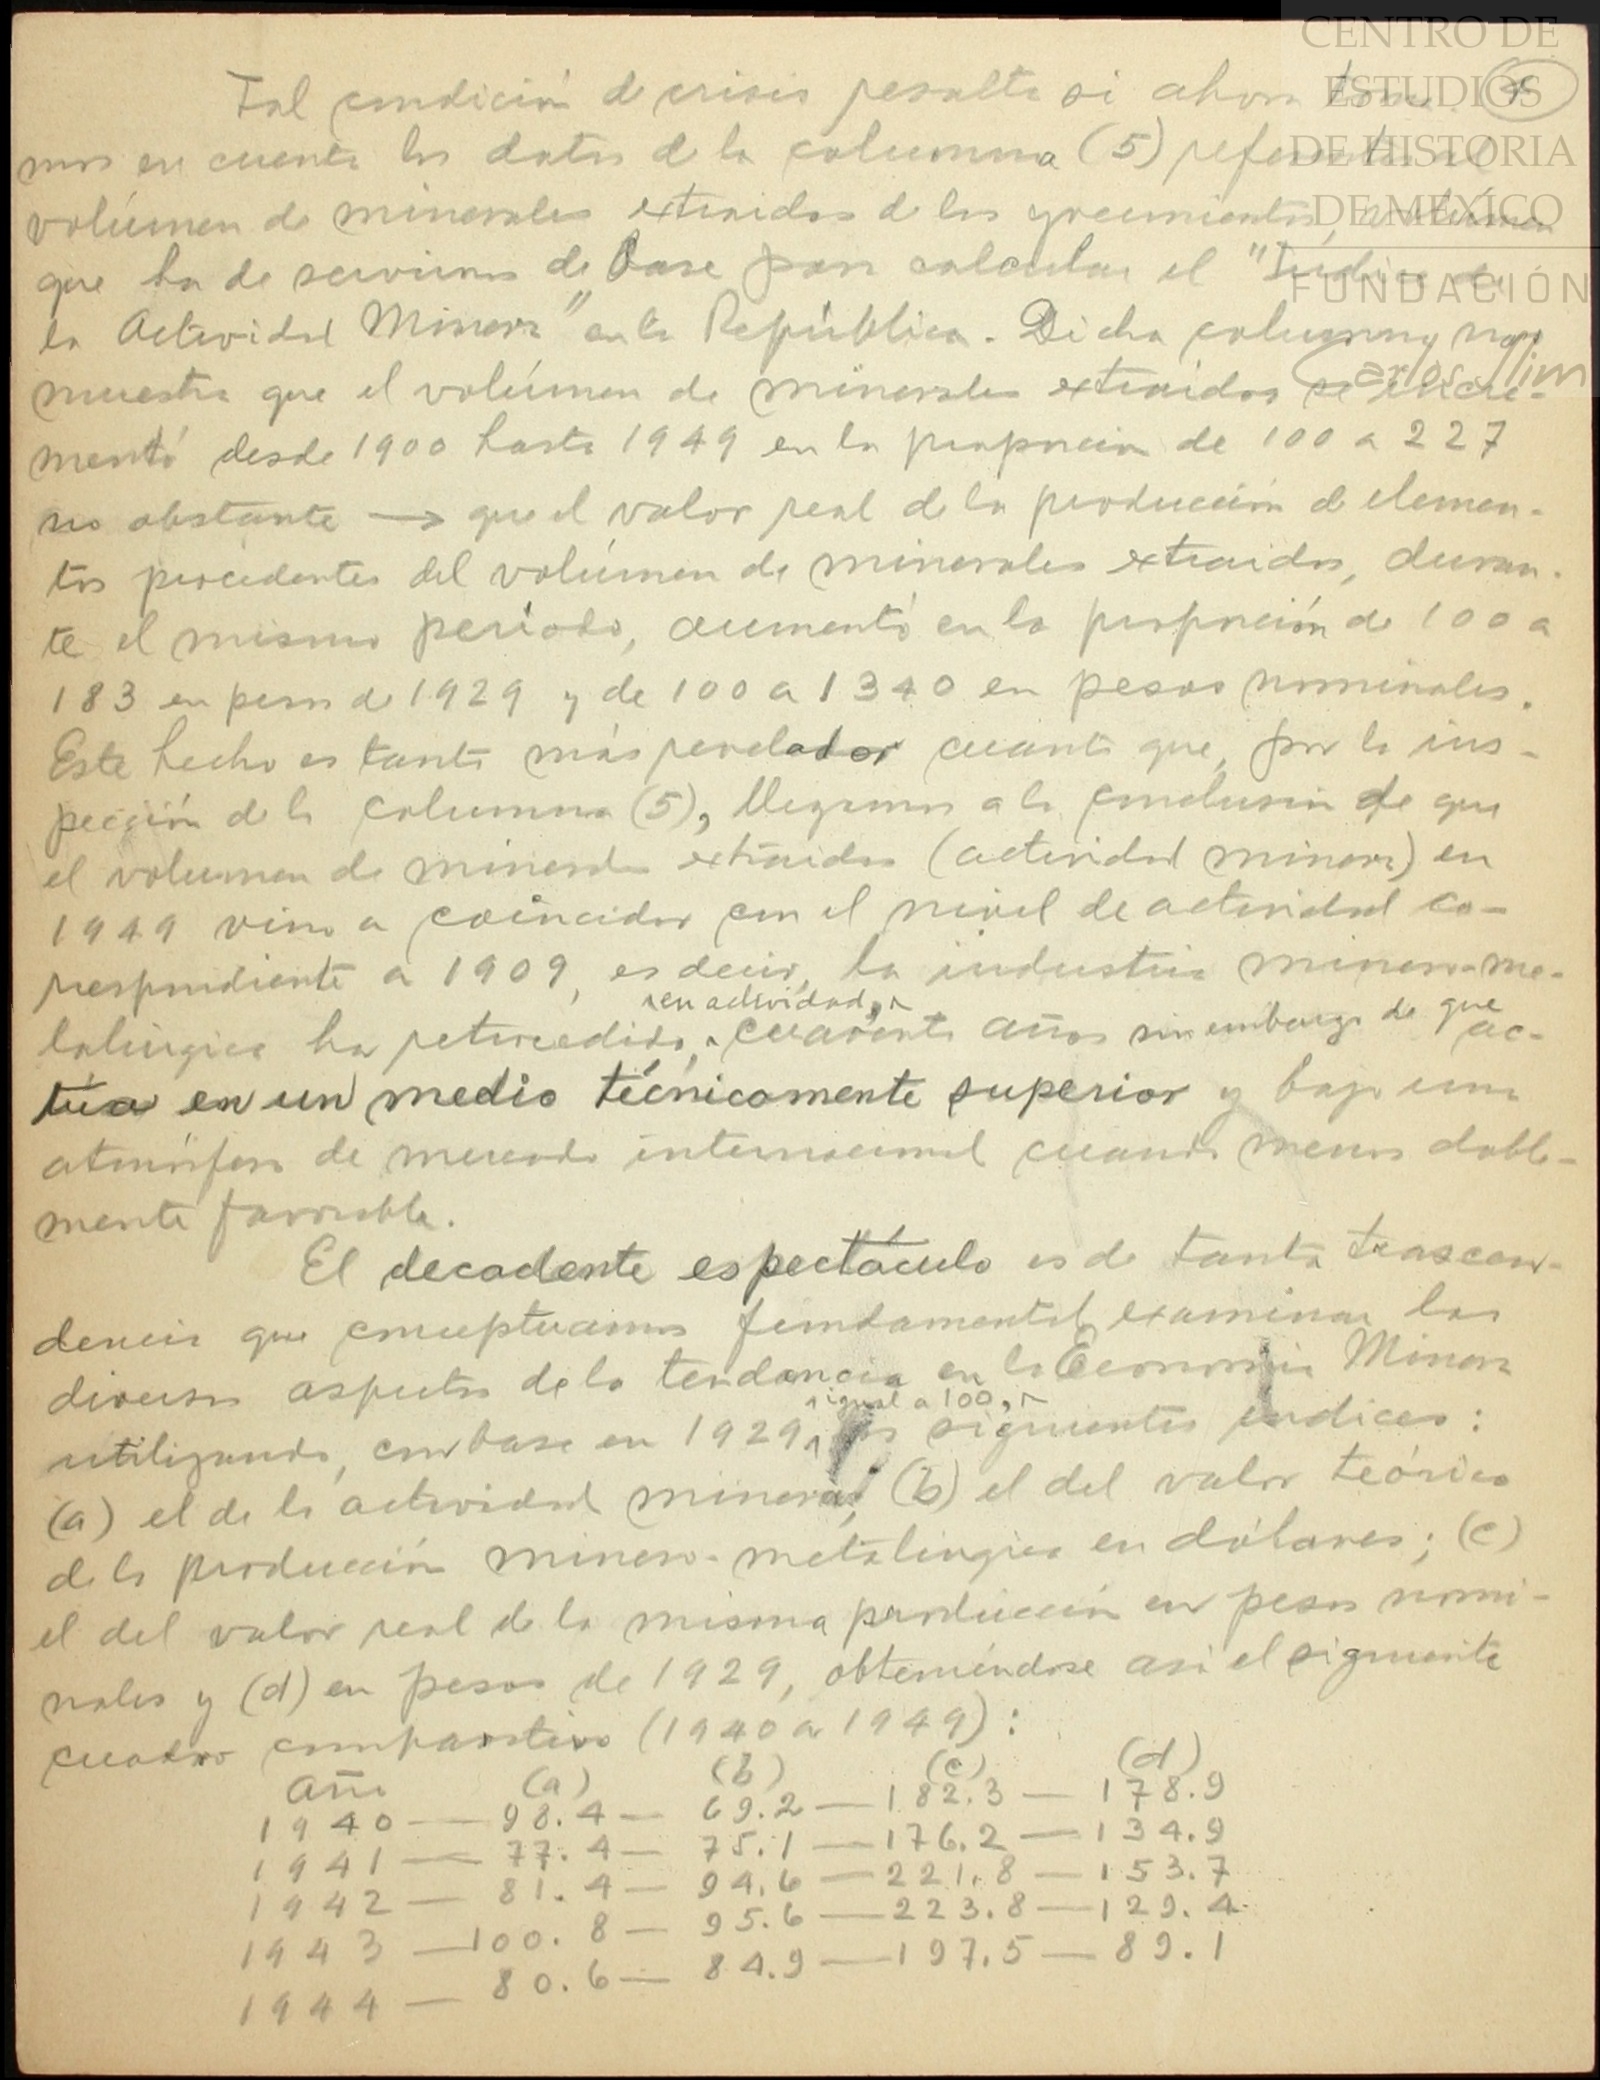 CENTRO DE
ESTUDIOS
DE HISTORIA
DE MÉXICO
FUNDACIÓN
Carlos Slim
Tal condición de crisis resalta si ahora
mos en cuenta los datos de la columna (5) referentes al
volúmen de minerales extraidos de los yacimientos, volumen
que ha de servirnos de base para calcular el "Indice de
la Actividad Minera" en la República. Dicha columna, nos
muestra que el volúmen de minerales extraidos se incre-
mentó desde 1900 hasta 1949 en la proporción de 100 a 227
no obstante → que el valor real de la producción de elemen-
tos procedentes del volúmen de minerales extraidos, duran-
te el mismo período, aumentó en la proporción de 100 a
183 en pesos de 1929 y de 100 a 1340 en pesos nominales.
Este hecho es tanto más revelador cuanto que, por la ins-
pección de la columna (5), llegamos a la conclusión de que
el volumen de minerales extraidos (actividad minera) en
1949 vino a coincidir con el nivel de actividad co-
rrespondiente a 1909, es decir, la industria minero-me-
en actividad,
talúrgica ha retrocedido, cuarenta años sin embargo de que ac-
túa en un medio técnicamente superior y bajo una
atmósfera de mercado internacional cuando menos doble-
mente favorable.
El decadente espectáculo es de tanta trascen-
dencia que conceptuamos fundamental examinar los
diversos aspectos de la tendencia en la Economía Minera
igual a 100,
utilizando, con base en 1929, los siguientes indices:
(a) el de la actividad minera; (b) el del valor teórico
de la producción minero-metalúrgica en dólares; (c)
el del valor real de la misma producción en pesos nomi-
nales y (d) en pesos de 1929, obteniéndose asi el siguiente
cuadro comparativo (1940 a 1949):
Año (a) (b) (c) (d)
1940 — 98.4 — 69.2 — 182.3 — 178.9
1941 — 77.4 — 75.1 — 176.2 — 134.9
1942 — 81.4 — 94.6 — 221.8 — 153.7
1943 — 100.8 — 95.6 — 223.8 — 129.4
1944 — 80.6 — 84.9 — 197.5 — 89.1